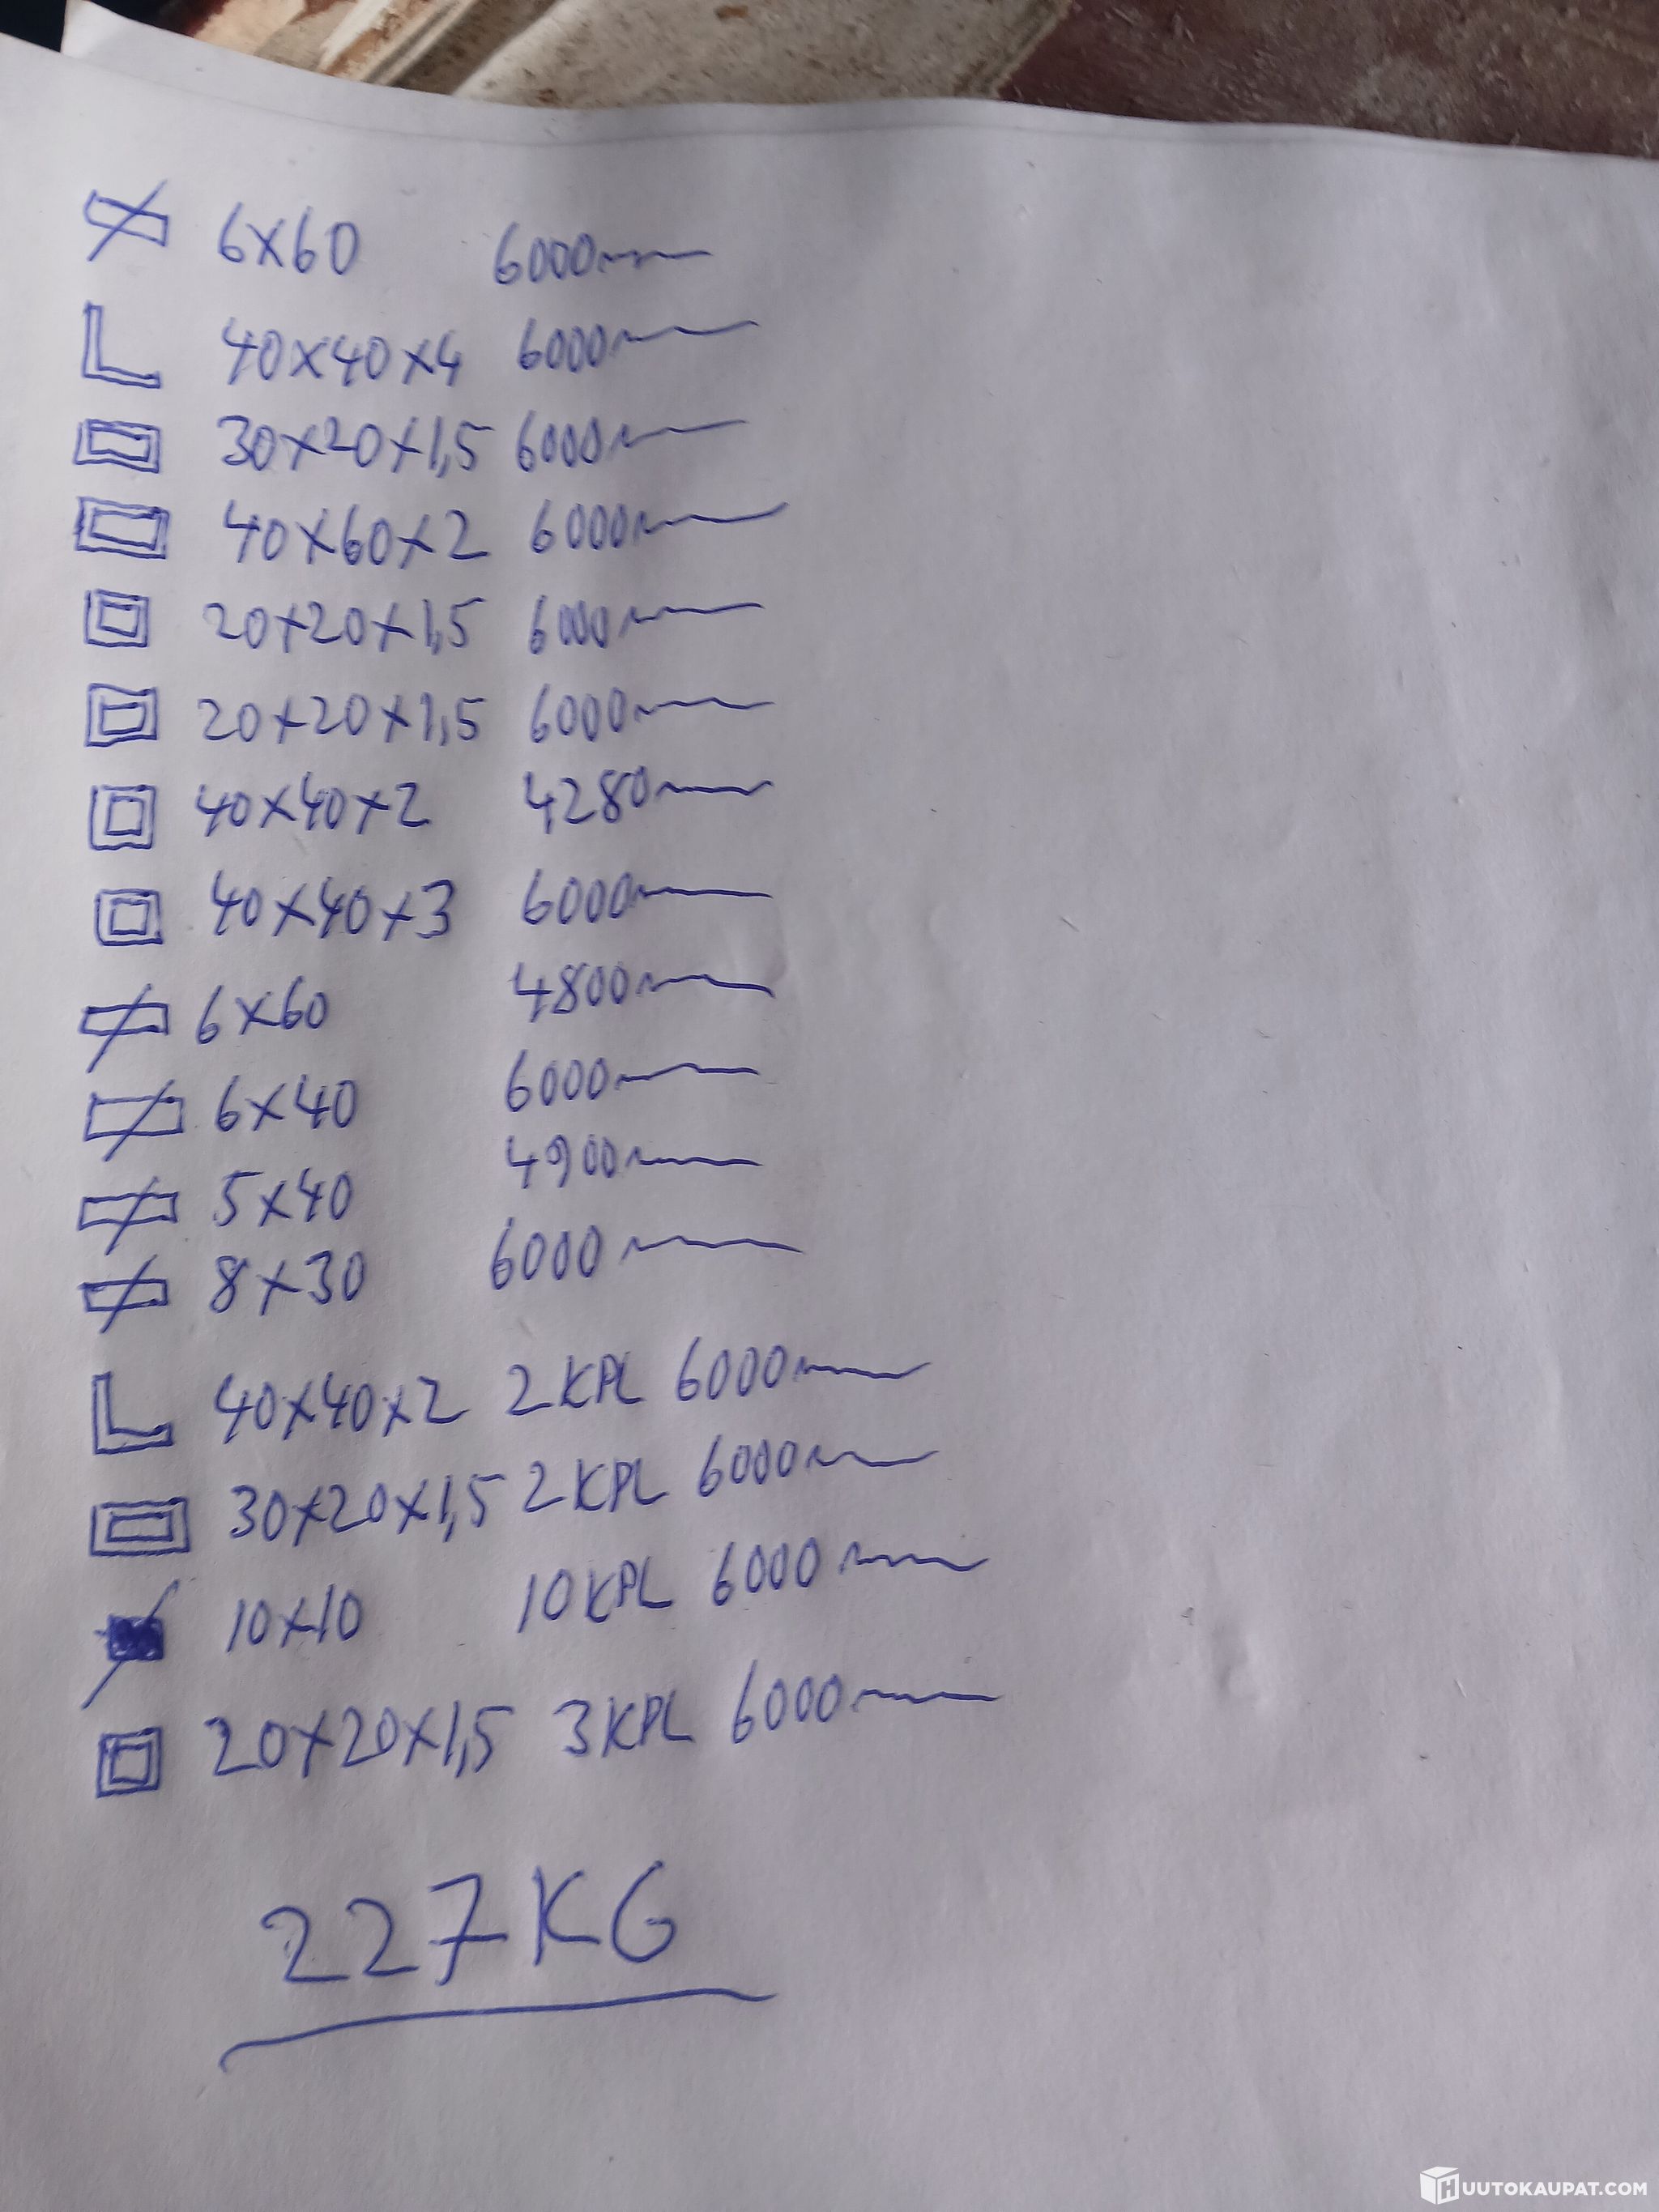 6x60 6000mm
40x40x4 6000mm
30x20x1,5 6000mm
40x60x2 6000mm
20x20x1,5 6000mm
20x20x1,5 6000mm
40x40x2 4280mm
40x40x3 6000mm
6x60 4800mm
6x40 6000mm
5x40 4900mm
8x30 6000mm
40x40x2 2 KPL 6000mm
30x20x1,5 2 KPL 6000mm
10x10 10 KPL 6000mm
20x20x1,5 3 KPL 6000mm
227 KG
HUUTOKAUPAT.COM